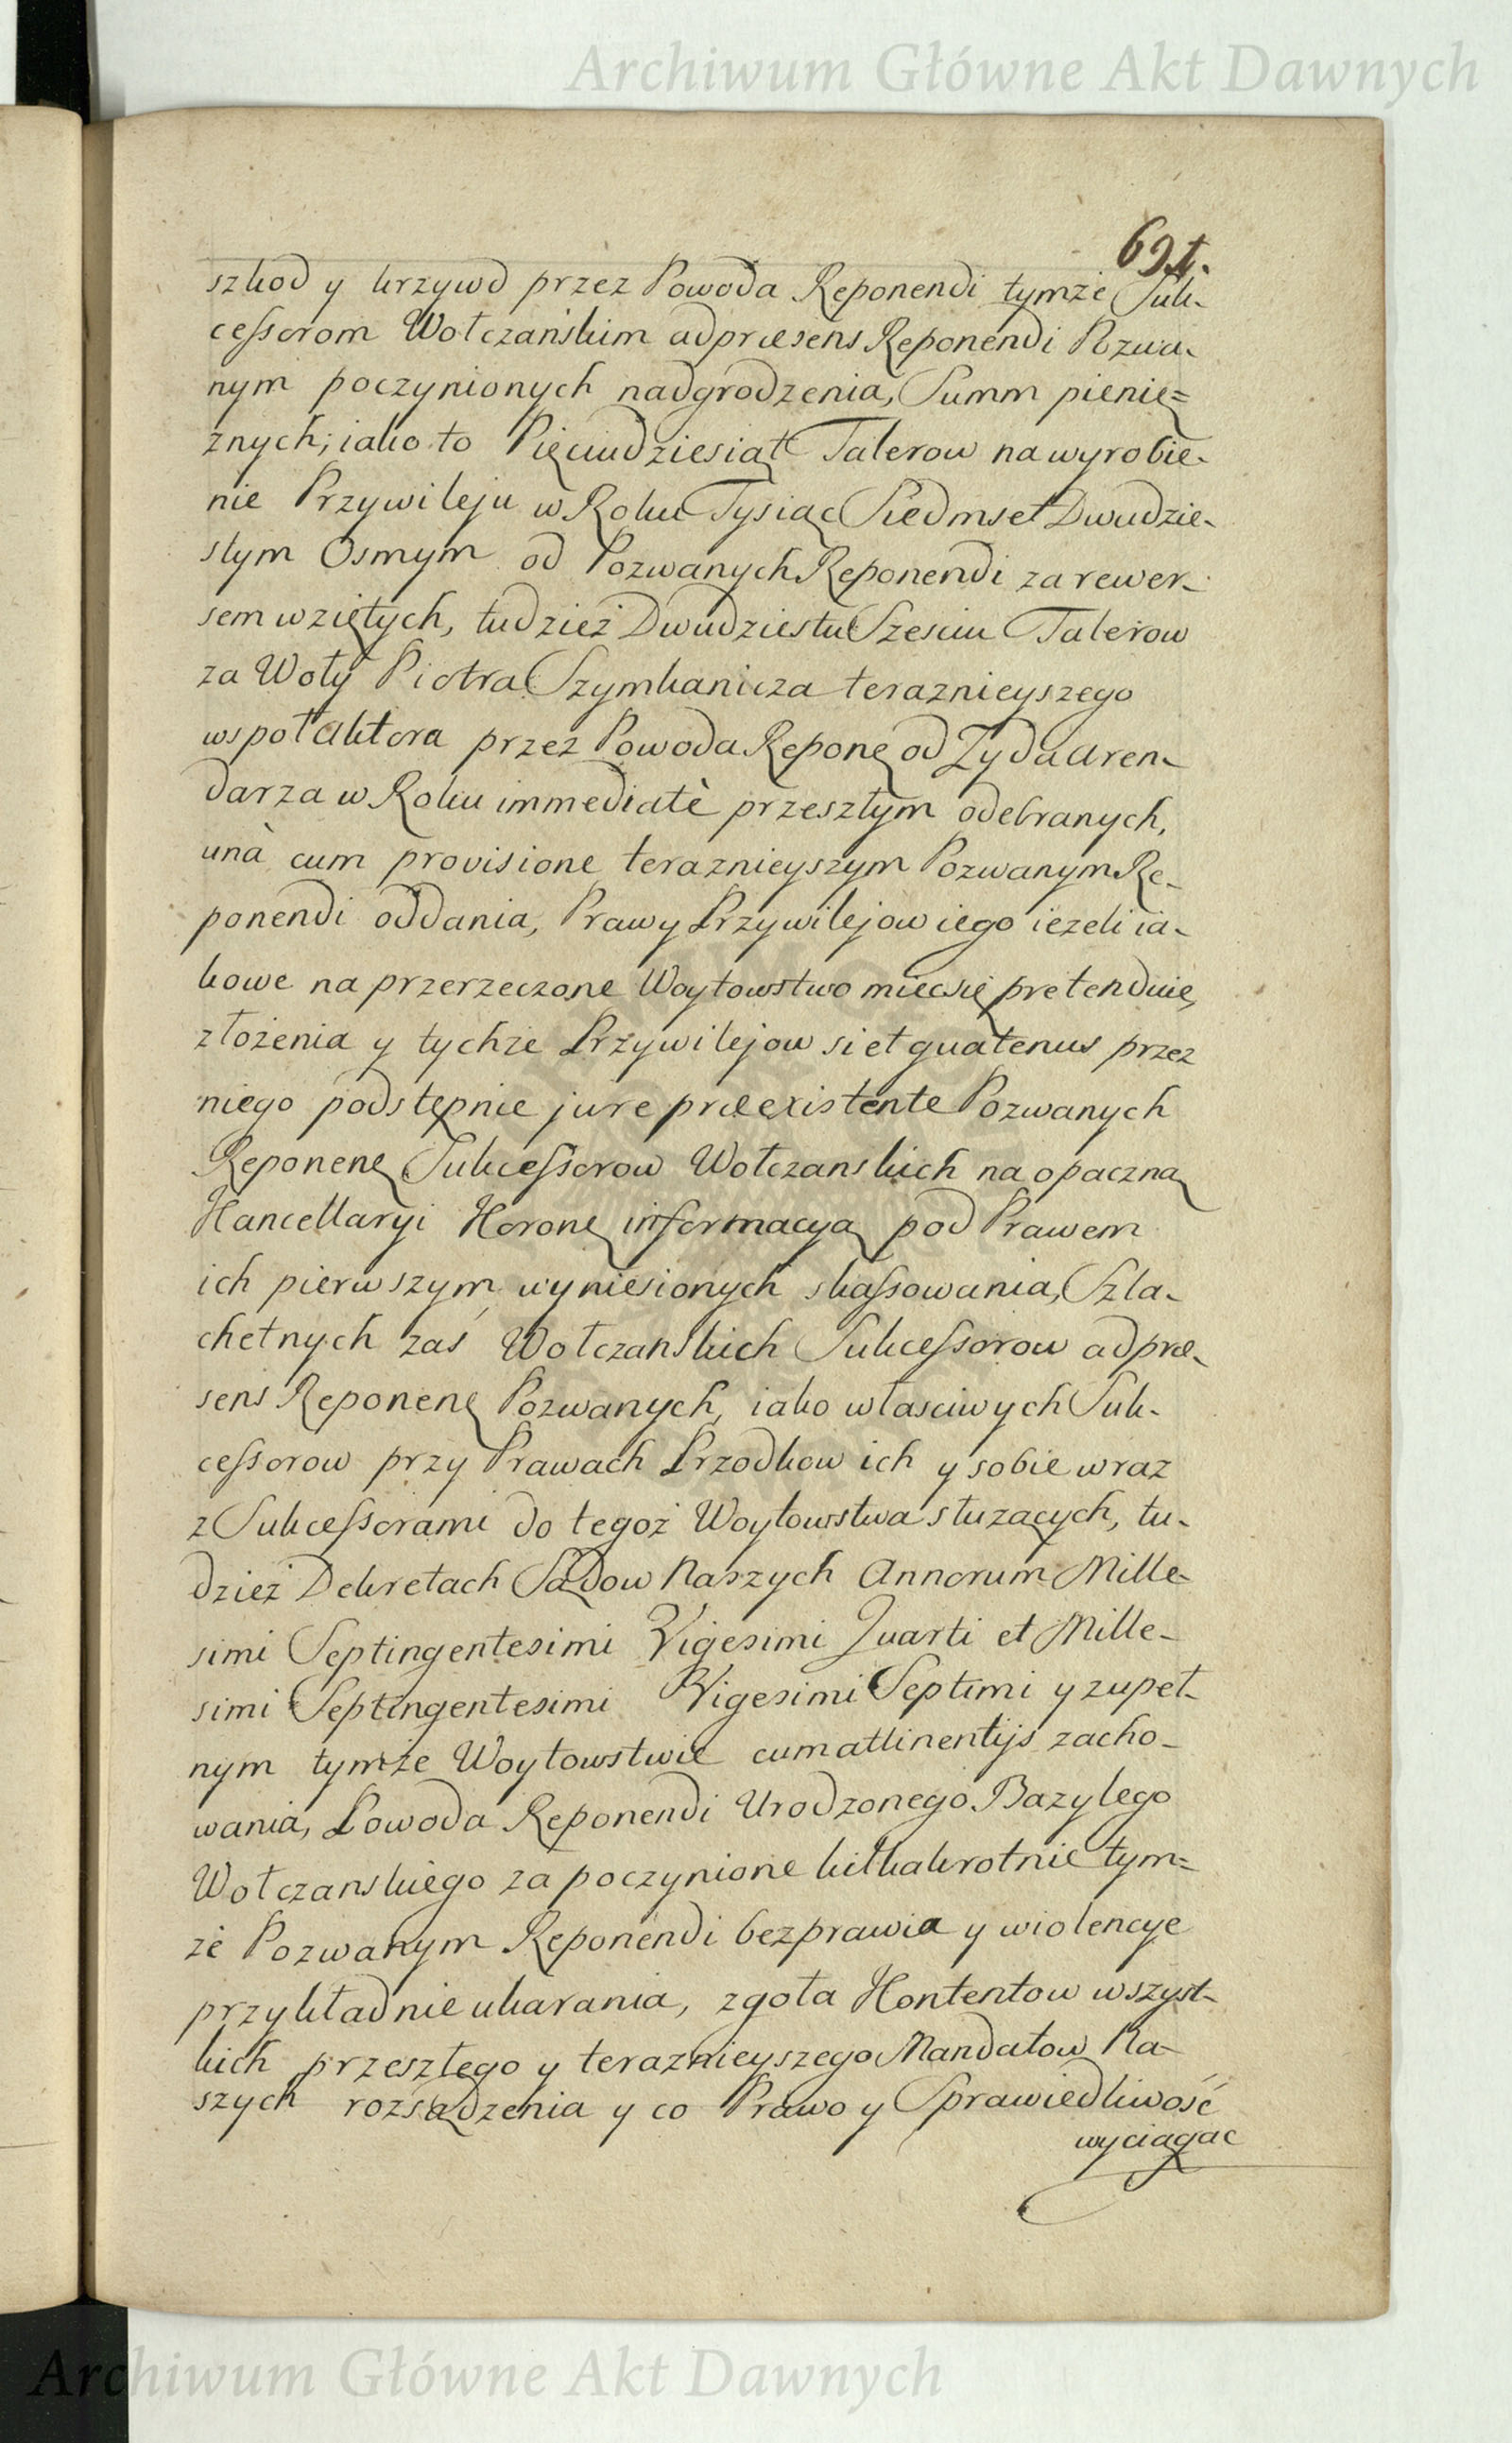 Archiwum Główne Akt Dawnych
691.
szkod y krzywd przez Powoda Reponendi tymże Suk-
cessorom Wołczańskim ad præsens Reponendi Pozwa-
nym poczynionych nadgrodzenia, Summ pienię=
znych; iako to Pięciudziesiąt Talerow na wyrobie-
nie Przywileju w Roku Tysiąc Siedmset Dwudzie-
stym Osmym od Pozwanych Reponendi za rewer-
sem wziętych, tudzież Dwudziestu Szesciu Talerow
za Woły Piotra Szymkanicza teraznieyszego
wspołaktora przez Powoda Reponę od Zyda aren-
darza w Roku immediatè przeszłym odebranych,
unà cum provisione teraznieyszym Pozwanym Re-
ponendi oddania, Prawy Przywilejow iego iezeli ia-
kowe na przerzeczone Woytowstwo miecsię pretenduie,
złożenia y tychże Przywilejow si et quatenus przez
niego podstępnie jure præexistente Pozwanych
Reponenę Sukcessorow Wołczanskich na opaczną
Kancellaryi Koronę informacyą pod Prawem
ich pierwszym wyniesionych skassowania, Szla-
chetnych zaś Wołczanskich Sukcessorow ad præ-
sens Reponenę Pozwanych, iako własciwych Suk-
cessorow przy Prawach Przodkow ich y sobie wraz
z Sukcessorami do tegoż Woytowstwa słuzących, tu-
dzież Dekretach Sądow Naszych Annorum Mille-
simi Septingentesimi Vigesimi Quarti et Mille-
simi Septingentesimi Vigesimi Septimi y zupeł-
nym tymże Woytowstwie cum attinentijs zacho-
wania, Powoda Reponendi Urodzonego Bazylego
Wołczanskiego za poczynione kilkakrotnie tym=
że Pozwanym Reponendi bezprawia y wiolencye
przykładnie ukarania, zgoła Kontentow wszyst-
kich przeszłego y teraznieyszego Mandatow Na-
szych rozsądzenia y co Prawo y Sprawiedliwość
wyciągac
Archiwum Główne Akt Dawnych